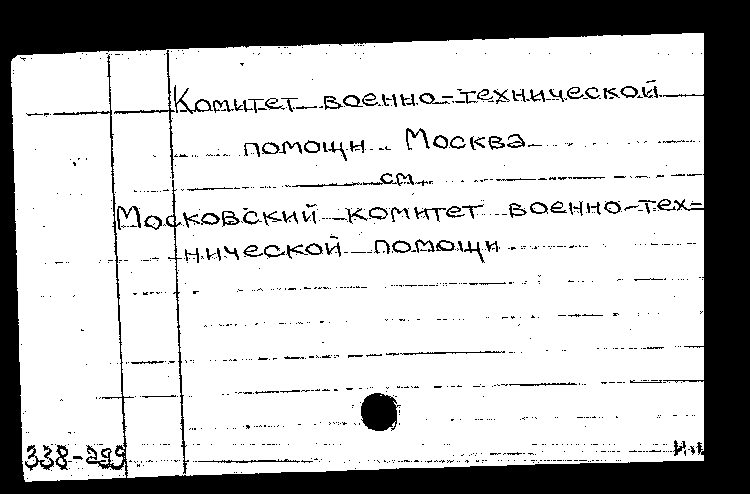 Комитет военно-технической
помощи. Москва
см.
Московский комитет военно-тех=
нической помощи
338-299